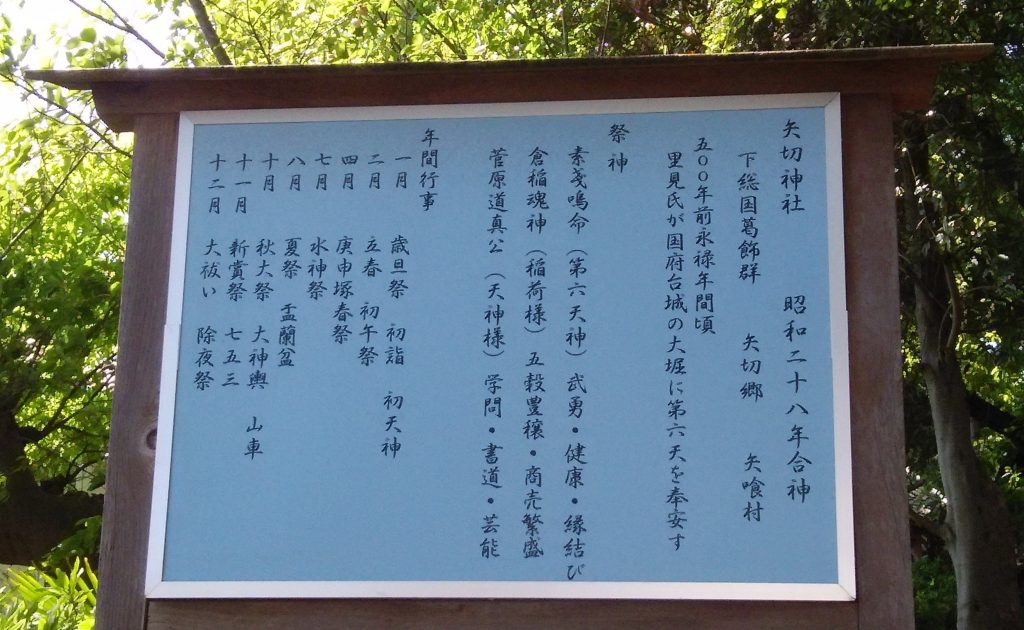 矢切神社　昭和二十八年合神
下総国葛飾群　矢切郷　矢喰村
五〇〇年前永禄年間頃
里見氏が国府台城の大堀に第六天を奉安す
祭神
素戔鳴命（第六天神）武勇・健康・縁結び
倉稲魂神（稲荷様）五穀豊穣・商売繁盛
菅原道真公（天神様）学問・書道・芸能
年間行事
一月　歳旦祭　初詣　初天神
二月　立春　初午祭
四月　庚申塚春祭
七月　水神祭
八月　夏祭　盂蘭盆
十月　秋大祭　大神輿　山車
十一月　新嘗祭　七五三
十二月　大祓い　除夜祭